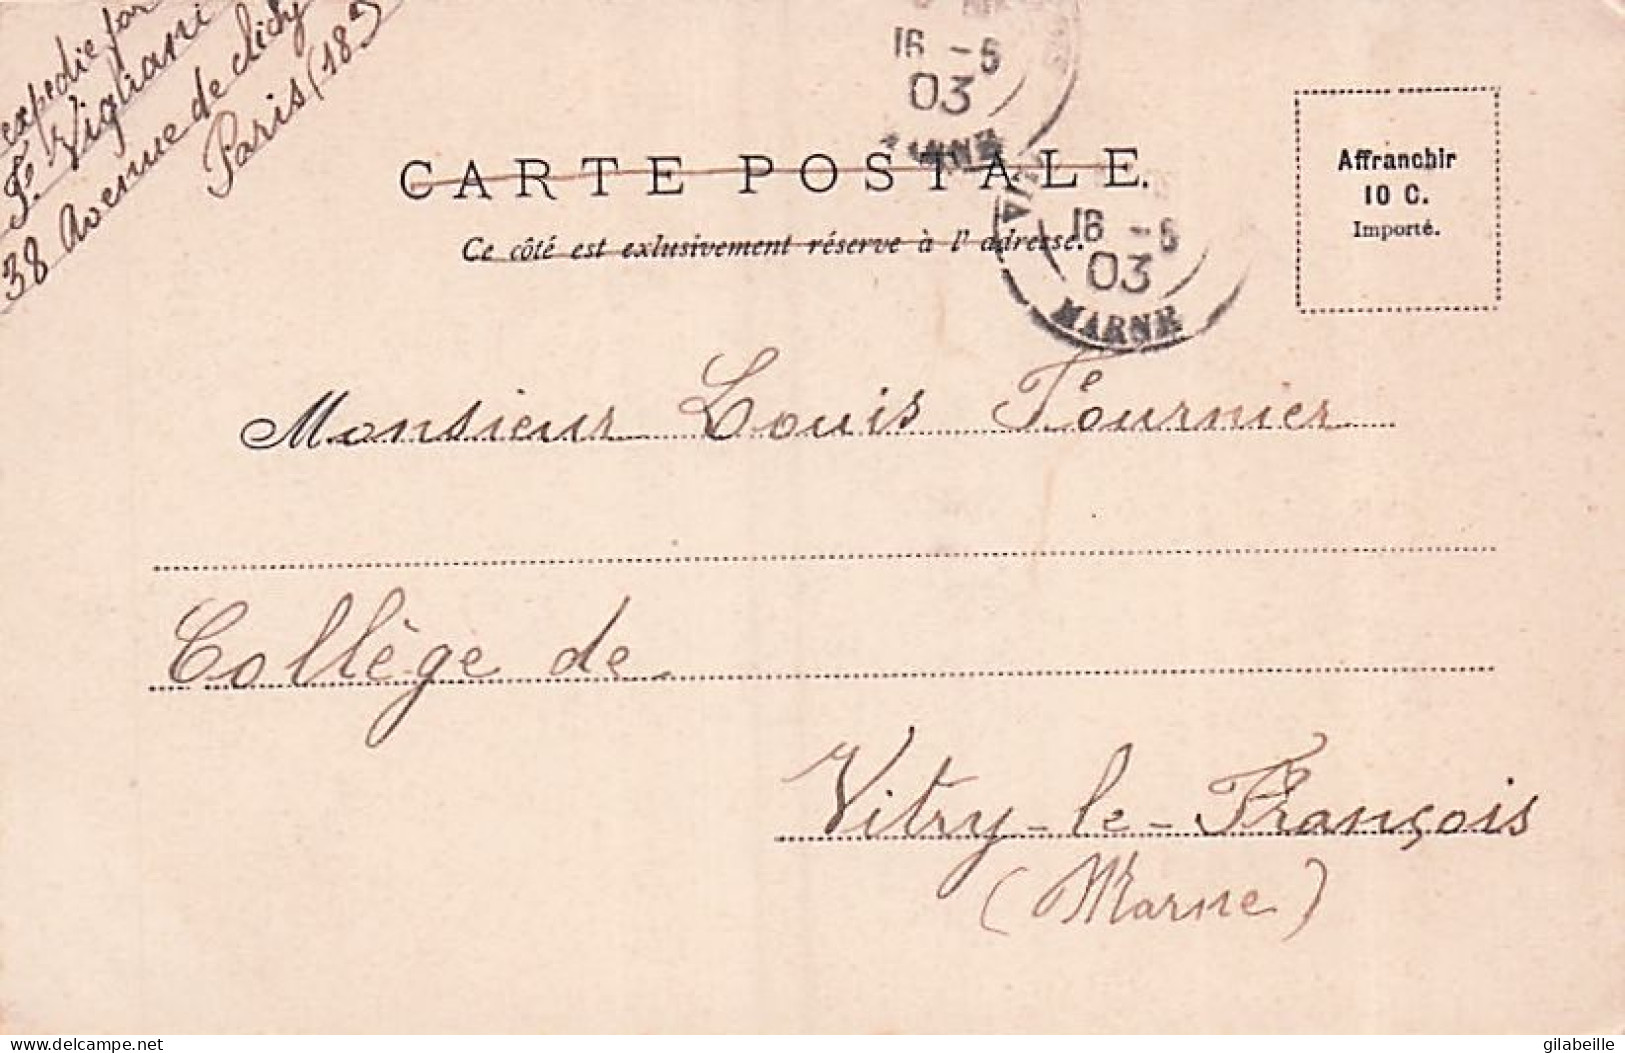 expédié par
F. Vigliani
38 Avenue de Clichy
Paris (18
16 - 5
03
MARNE
CARTE POSTALE.
Ce côté est exlusivement réserve à l' adresse.
16 - 5
03
MARNE
Affranchir
10 C.
Importé.
Monsieur Louis Fournier
Collège de
Vitry-le-François
(Marne)
delcampe.net
gilabeille